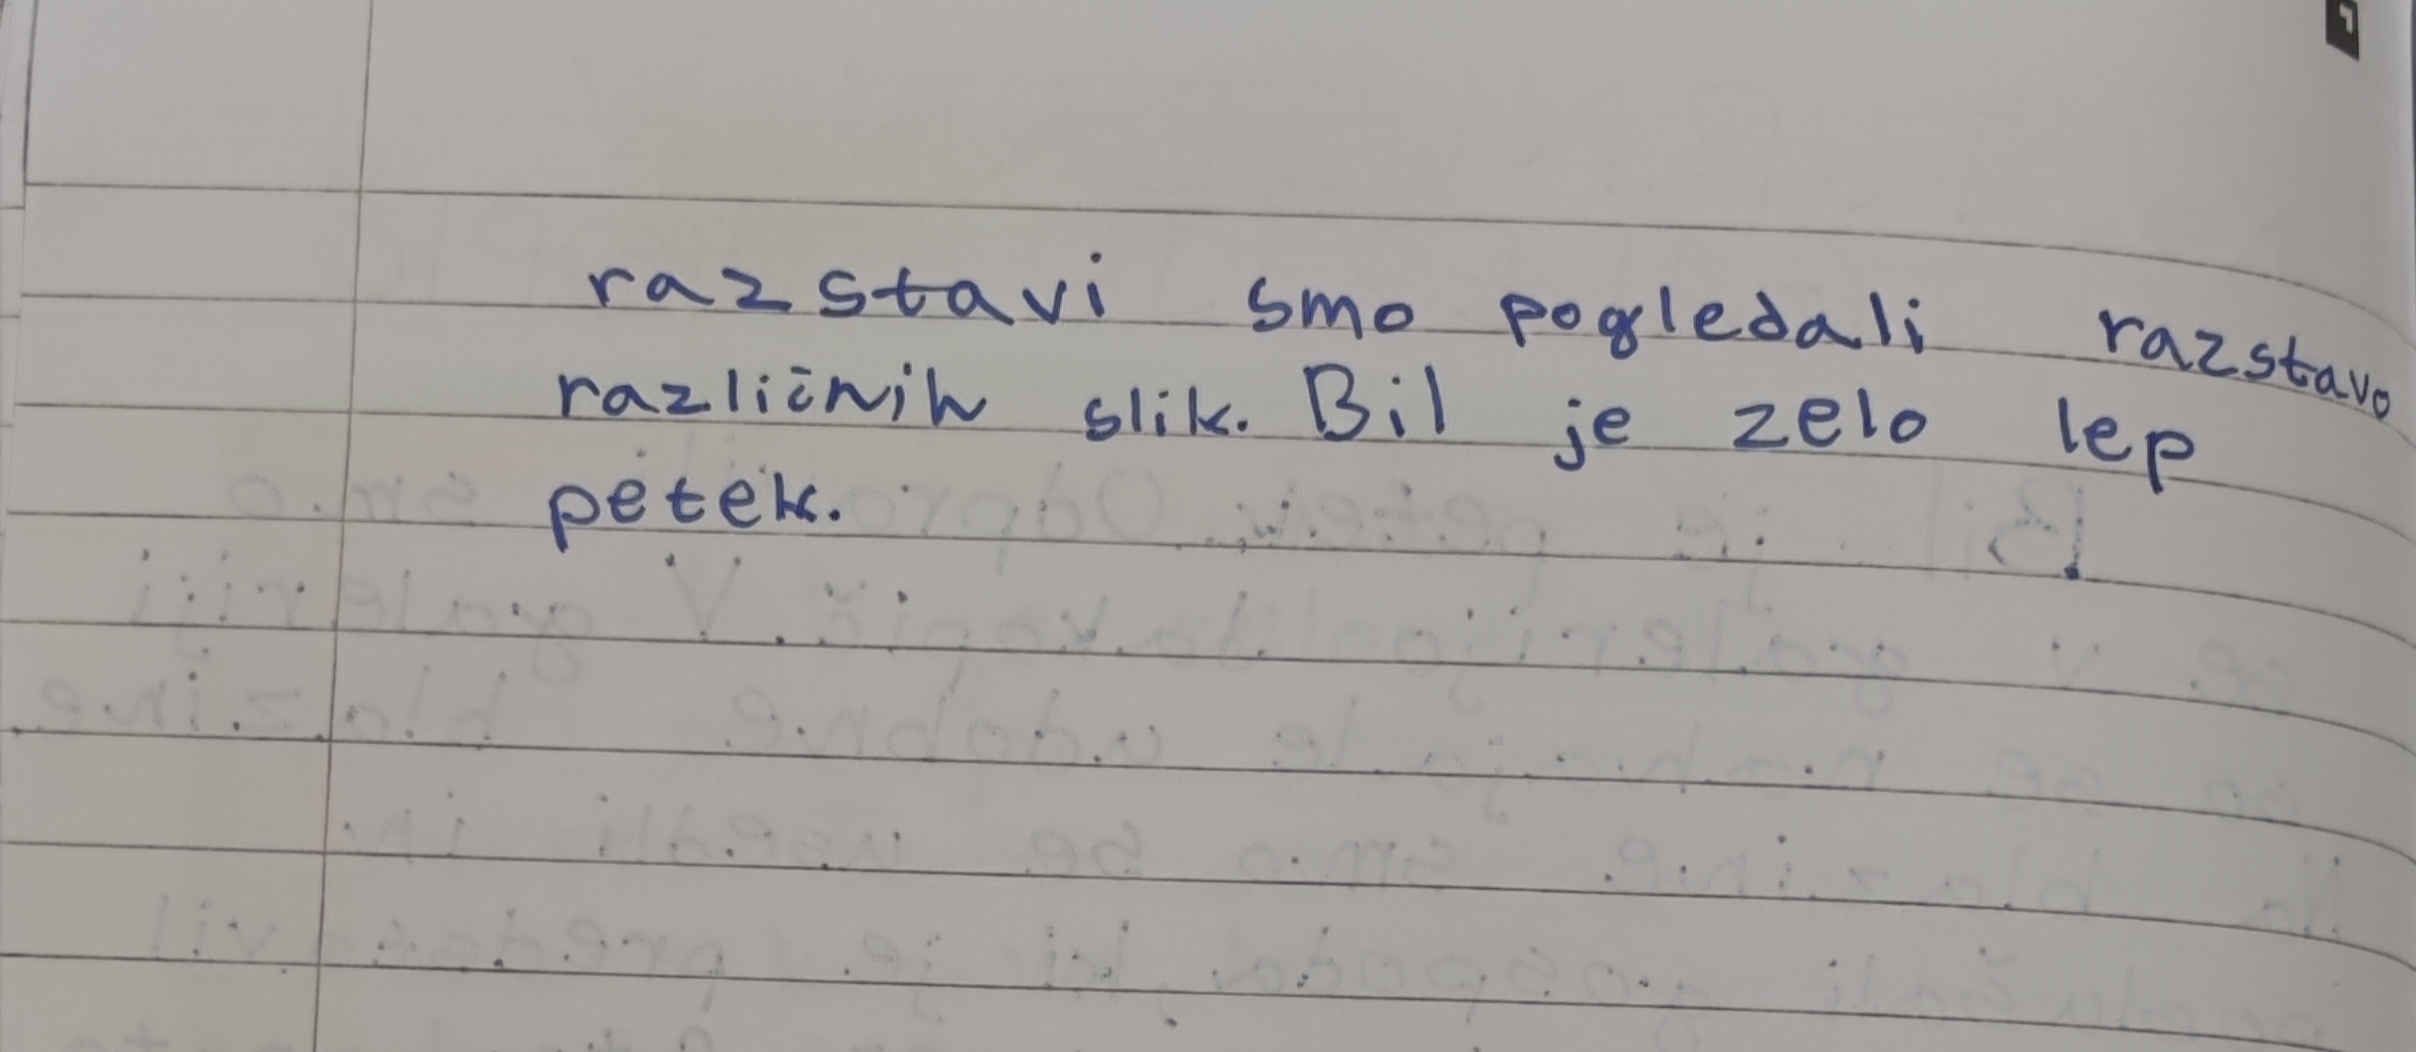 razstavi smo pogledali razstavo
različnih slik. Bil je zelo lep
petek.